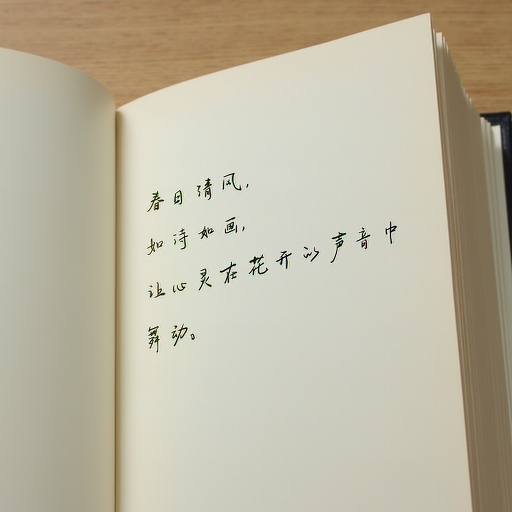 春日清风，
如诗如画，
让心灵在花开的声音中
舞动。